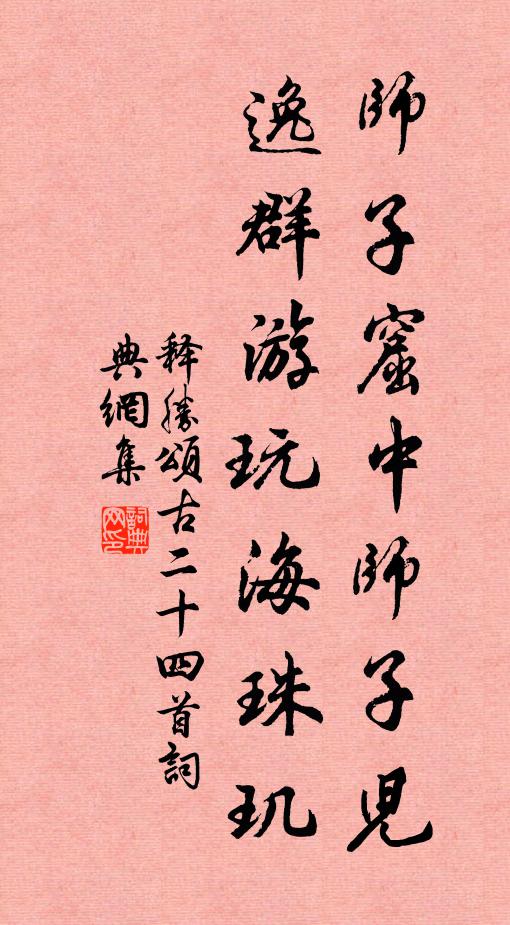 師子窟中師子児
逸群游玩海珠玑
释勝頌古二十四首詞
典網集
詞典网印